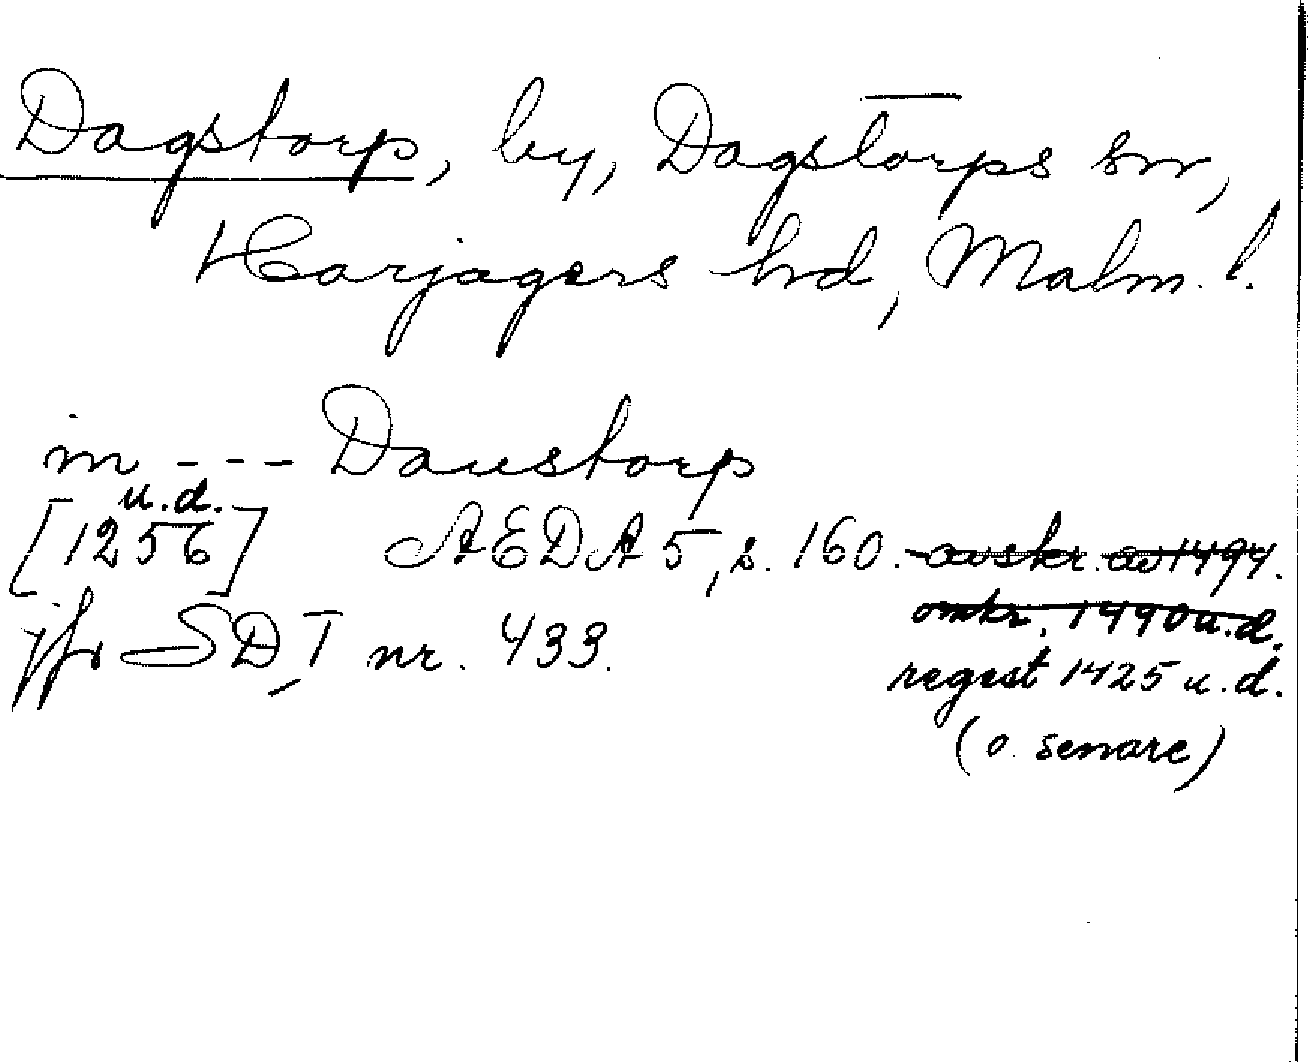 Dagstorp, by, Dagstorps sn,
Harjagers hd, Malm. l.
in --- Daustorp
u.d.
[1256] AEDA 5, s. 160. avskr. av 1494.
omkr. 1490 u.d.
jfr SD I nr. 433.
regest 1425 u.d.
(o. senare)